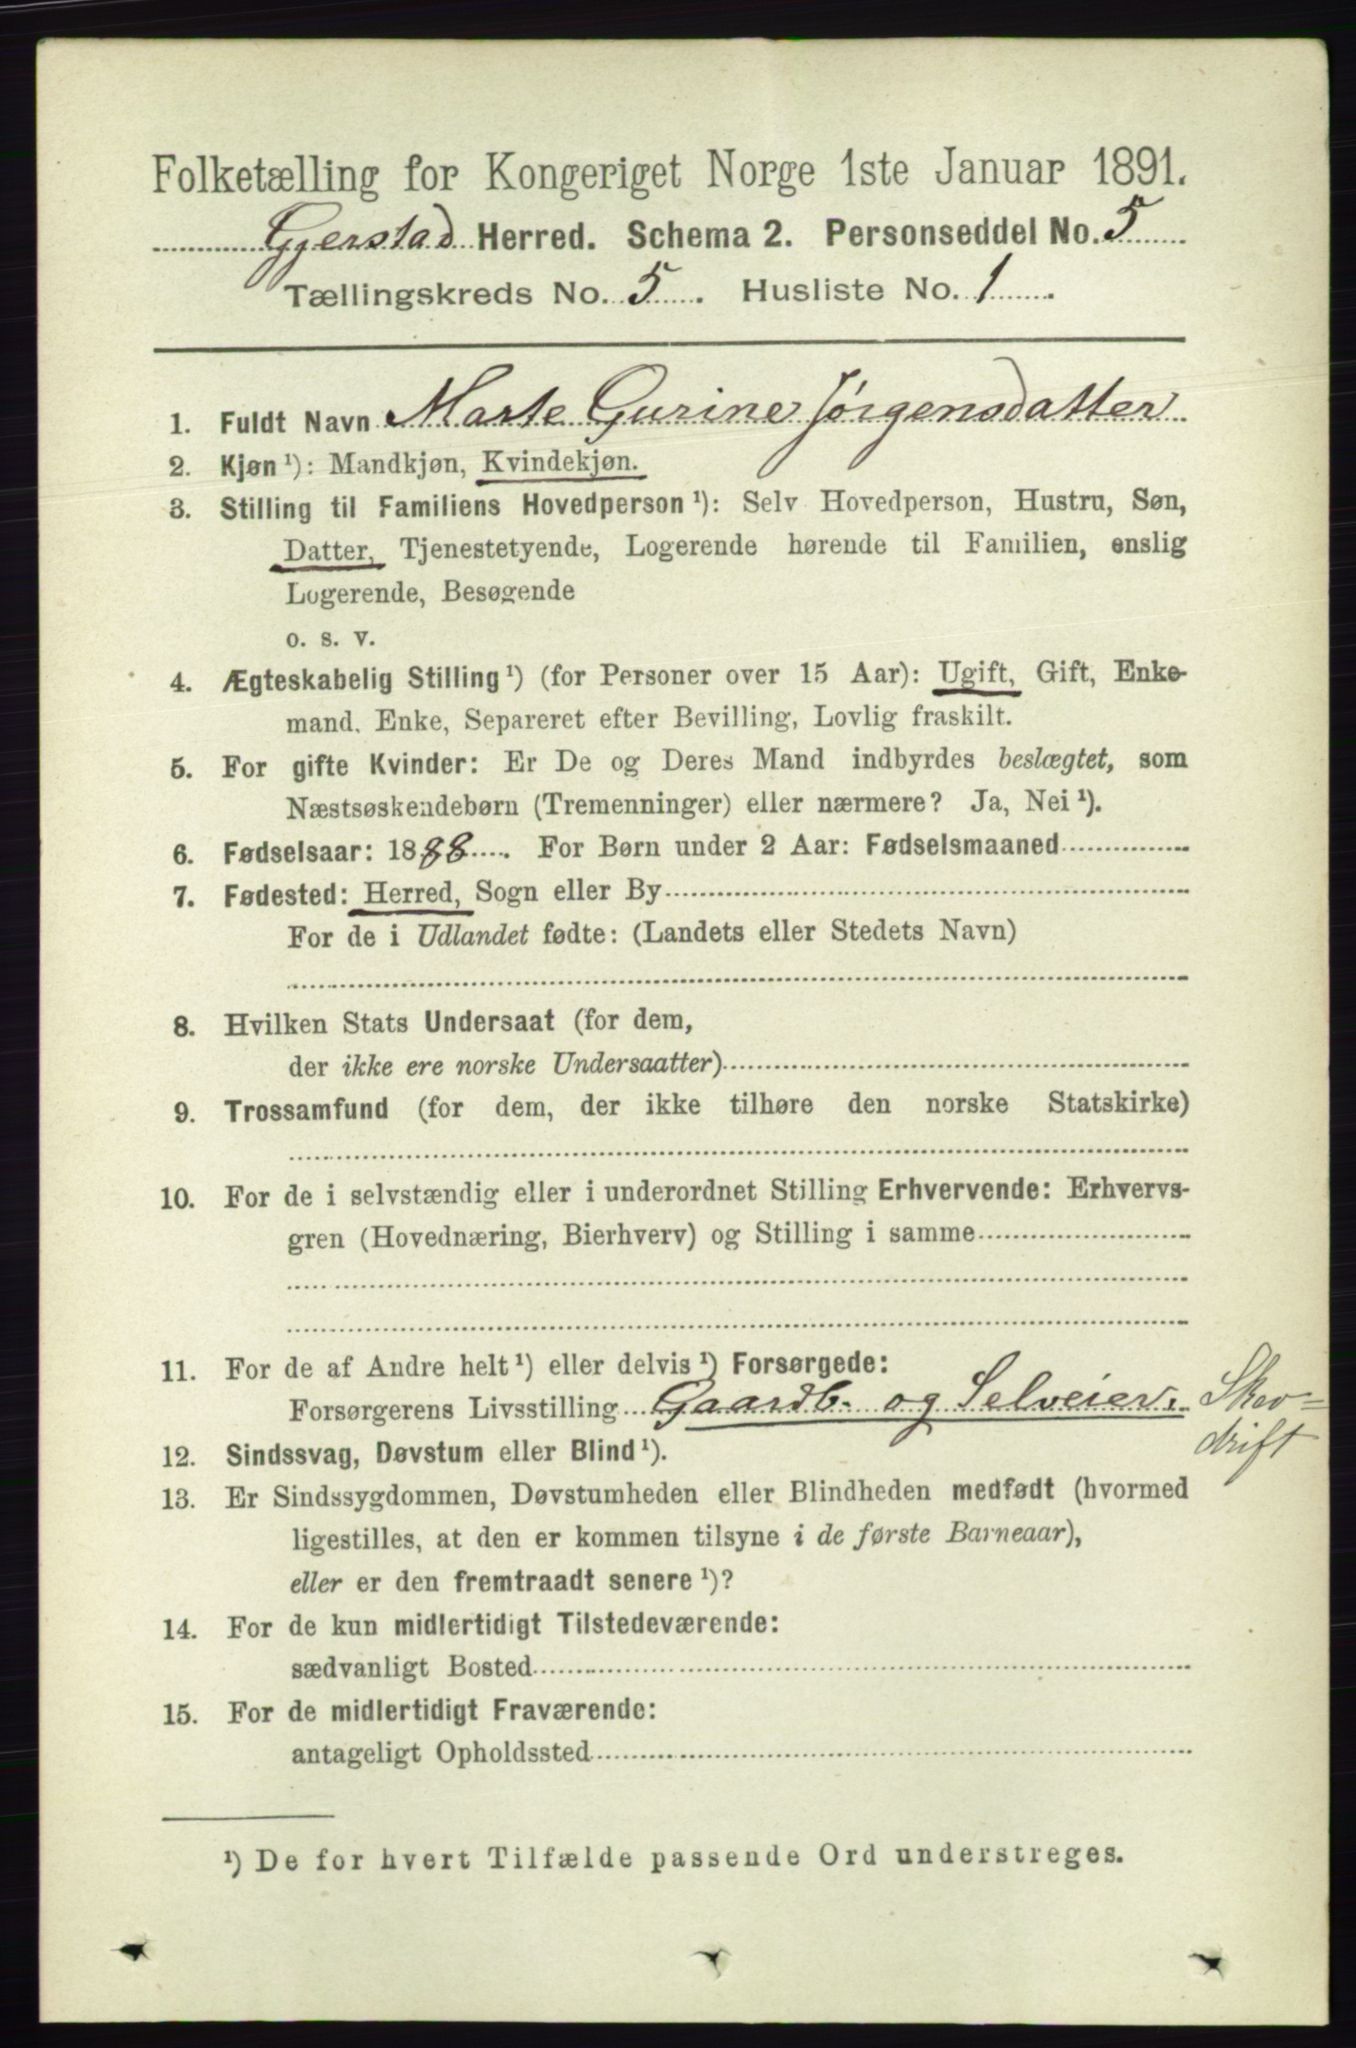 Folketælling for Kongeriget Norge 1ste Januar 1891.
Gjerstad Herred. Schema 2. Personseddel No. 5
Tællingskreds No. 5. Husliste No. 1.
1. Fuldt Navn Marte Gurine Jørgensdatter
2. Kjøn ¹): Mandkjøn, Kvindekjøn.
3. Stilling til Familiens Hovedperson ¹): Selv Hovedperson, Hustru, Søn,
Datter, Tjenestetyende, Logerende hørende til Familien, enslig
Logerende, Besøgende
o. s. v.
4. Ægteskabelig Stilling ¹) (for Personer over 15 Aar): Ugift, Gift, Enke-
mand, Enke, Separeret efter Bevilling, Lovlig fraskilt.
5. For gifte Kvinder: Er De og Deres Mand indbyrdes beslægtet, som
Næstsøskendebørn (Tremenninger) eller nærmere? Ja, Nei ¹).
6. Fødselsaar: 1888. For Børn under 2 Aar: Fødselsmaaned
7. Fødested: Herred, Sogn eller By
For de i Udlandet fødte: (Landets eller Stedets Navn)
8. Hvilken Stats Undersaat (for dem,
der ikke ere norske Undersaatter)
9. Trossamfund (for dem, der ikke tilhøre den norske Statskirke)
10. For de i selvstændig eller i underordnet Stilling Erhvervende: Erhvervs-
gren (Hovednæring, Bierhverv) og Stilling i samme
11. For de af Andre helt ¹) eller delvis ¹) Forsørgede:
Forsørgerens Livsstilling Gaardb. og Selveier. Skov=
drift
12. Sindssvag, Døvstum eller Blind ¹).
13. Er Sindssygdommen, Døvstumheden eller Blindheden medfødt (hvormed
ligestilles, at den er kommen tilsyne i de første Barneaar),
eller er den fremtraadt senere ¹)?
14. For de kun midlertidigt Tilstedeværende:
sædvanligt Bosted
15. For de midlertidigt Fraværende:
antageligt Opholdssted
¹) De for hvert Tilfælde passende Ord understreges.